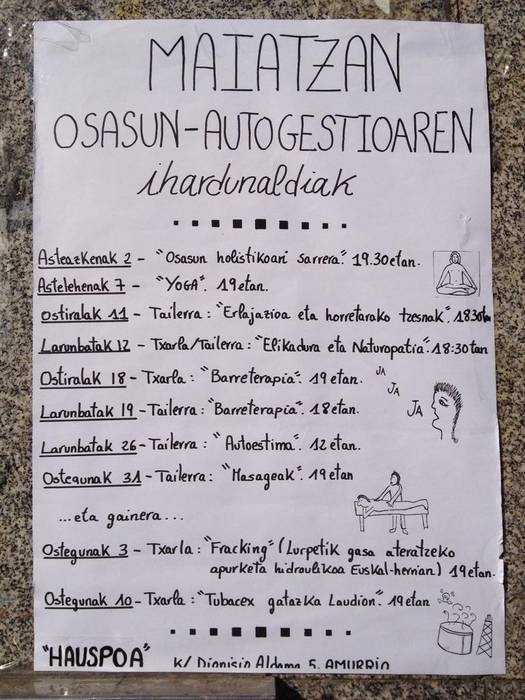 MAIATZAN
OSASUN-AUTOGESTIOAREN
ihardunaldiak
Asteazkenak 2 - "Osasun holistikoari sarrera". 19.30etan.
Astelehenak 7 - "YOGA". 19etan.
Ostiralak 11 - Tailerra: "Erlajazioa eta horretarako tresnak". 18:30tan
Larunbatak 12 - Txarla/Tailerra: "Elikadura eta Naturopatia". 18:30tan
Ostiralak 18 - Txarla: "Barreterapia". 19etan.
JA
JA
JA
Larunbatak 19 - Tailerra: "Barreterapia". 18etan.
Larunbatak 26 - Tailerra: "Autoestima". 12etan.
Ostegunak 31 - Tailerra: "Masageak". 19etan
...eta gainera...
Ostegunak 3 - Txarla: "Fracking" (Lurpetik gasa ateratzeko
apurketa hidraulikoa Euskal-herrian) 19etan.
Ostegunak 10 - Txarla: "Tubacex gatazka Laudion". 19etan
"HAUSPOA" K/ Dionisio Aldama 5. AMURRIO